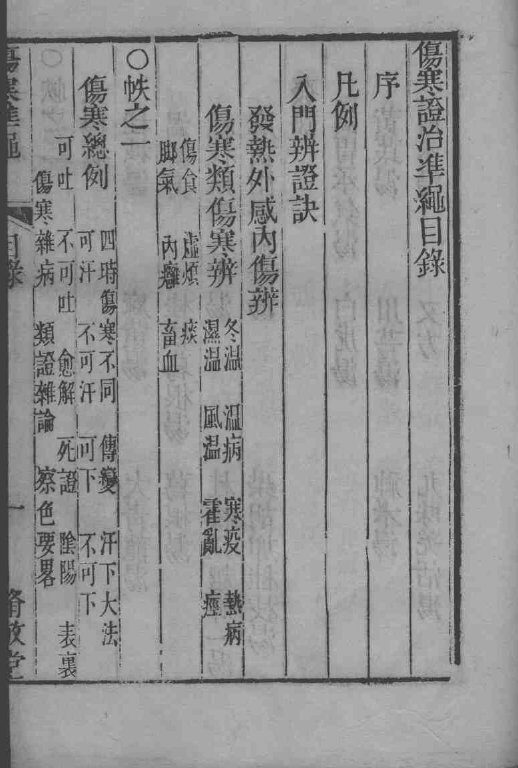 傷寒證治準繩目錄
序
凡例
入門辨證訣
發熱外感內傷辨
傷寒類傷寒辨
冬温 温病 寒疫 熱病
濕温 風温 霍亂 痙
傷食 虛煩 痰
腳氣 內癰 畜血
○帙之一
傷寒總例
四時傷寒不同 傳變 汗下大法
可汗 不可汗 可下 不可下
可吐 不可吐 愈解 死證 陰陽 表裏
傷寒雜病 類證雜論 察色要畧
傷寒準繩 目錄 一 脩敬堂